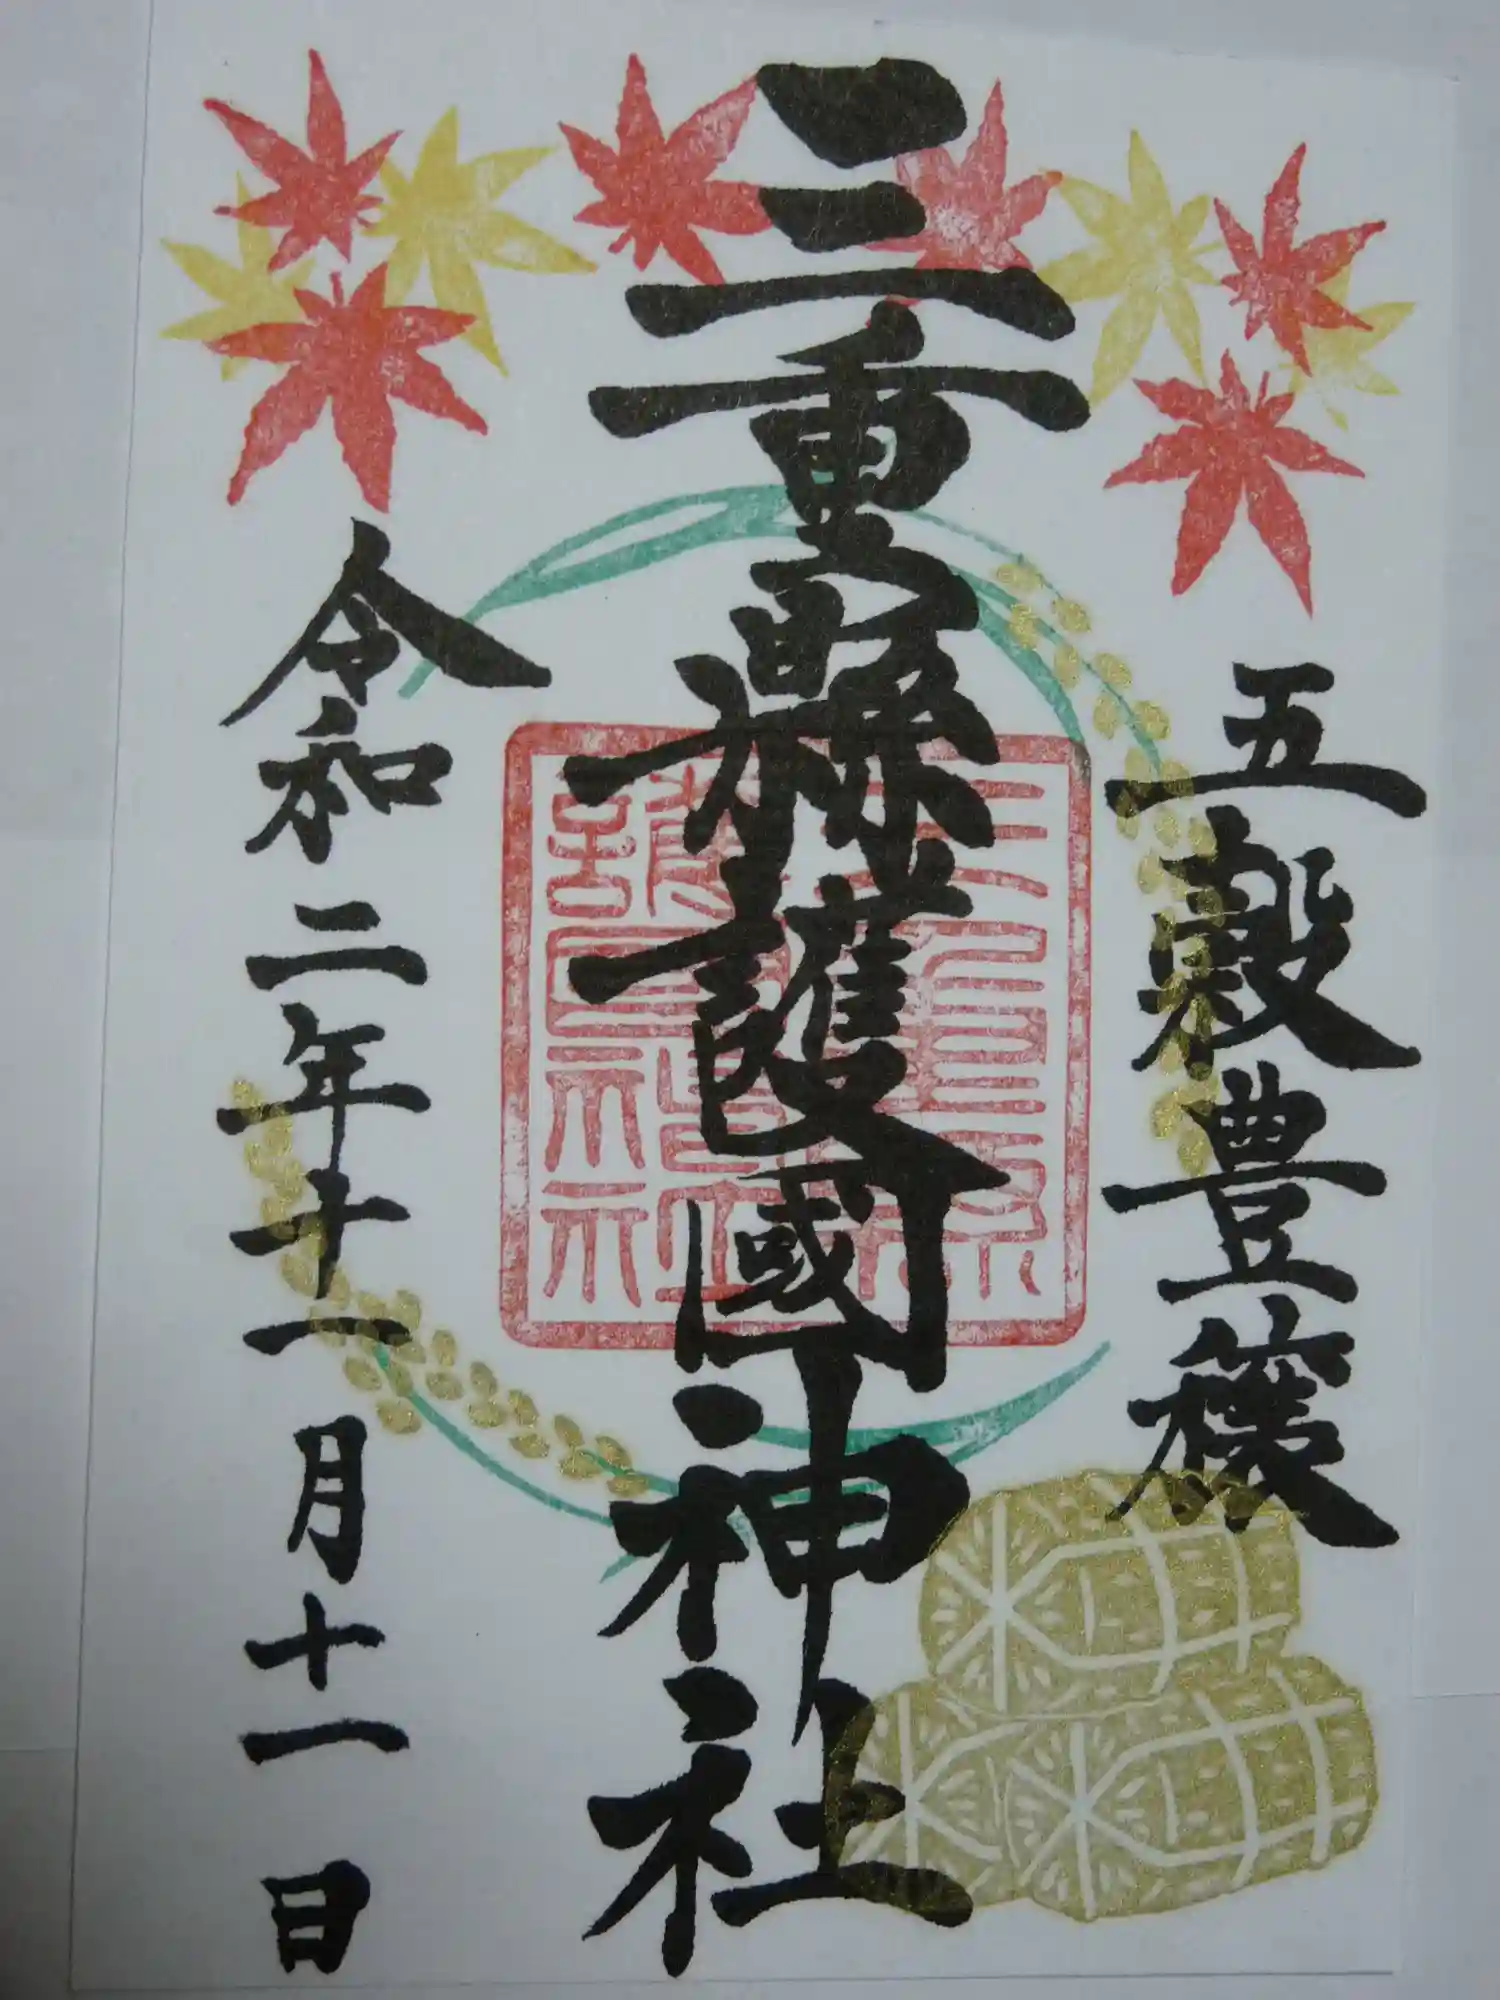 五穀豊穣
三重縣護國神社
三重縣護國神社
令和二年十一月十一日